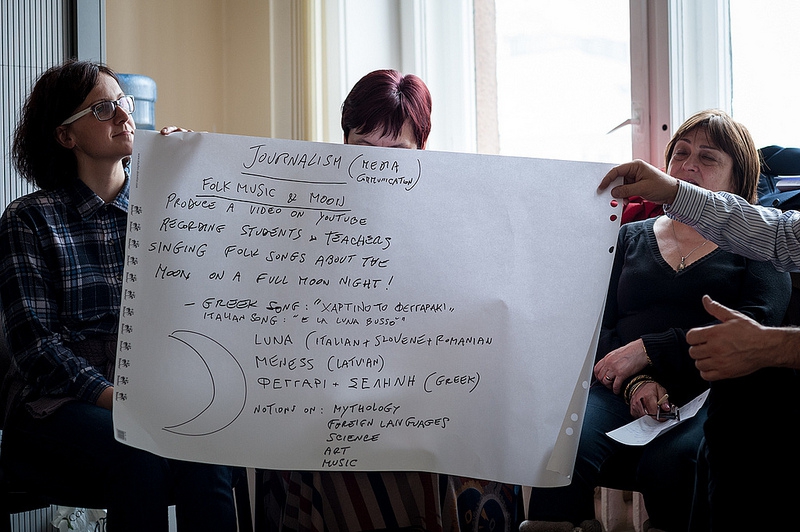 JOURNALISM (MEDIA COMMUNICATION)
FOLK MUSIC & MOON
PRODUCE A VIDEO ON YOUTUBE
RECORDING STUDENTS & TEACHERS
SINGING FOLK SONGS ABOUT THE
MOON ON A FULL MOON NIGHT!
- GREEK SONG: "ΧΑΡΤΙΝΟ ΤΟ ΦΕΓΓΑΡΑΚΙ"
ITALIAN SONG: "E LA LUNA BUSSO'"
LUNA (ITALIAN + SLOVENE + ROMANIAN
MENESS (LATVIAN)
ΦΕΓΓΑΡΙ + ΣΕΛΗΝΗ (GREEK)
NOTIONS ON: MYTHOLOGY
FOREIGN LANGUAGES
SCIENCE
ART
MUSIC